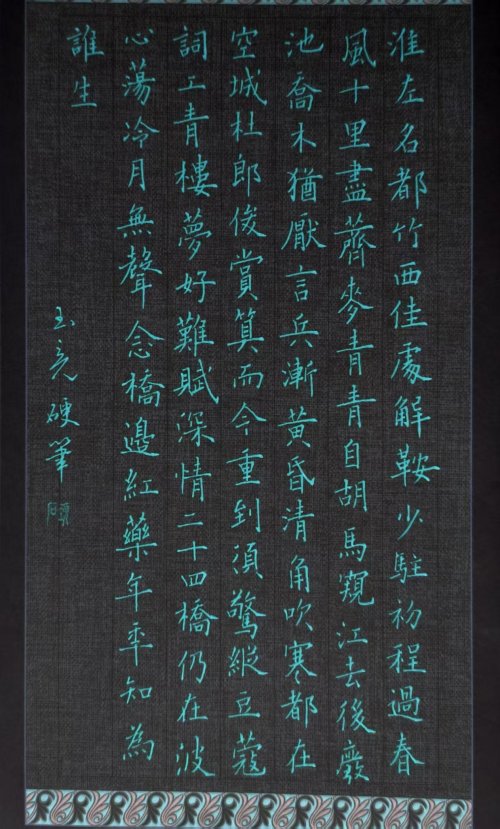 淮左名都竹西佳處解鞍少駐初程過春
風十里盡薺麥青青自胡馬窺江去後廢
池喬木猶厭言兵漸黃昏清角吹寒都在
空城杜郎俊賞算而今重到須驚縱豆蔻
詞工青樓夢好難賦深情二十四橋仍在波
心蕩冷月無聲念橋邊紅藥年年知為
誰生
玉亮硬筆